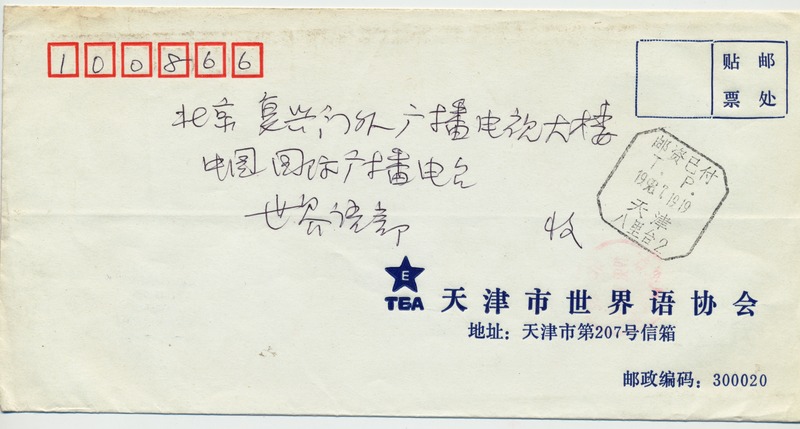 100866
贴 邮
票 处
北京复兴门外广播电视大楼
中国国际广播电台
世界语部 收
邮资已付
T. P.
天津
八里台2
E
TEA 天津市世界语协会
地址：天津市第207号信箱
邮政编码：300020